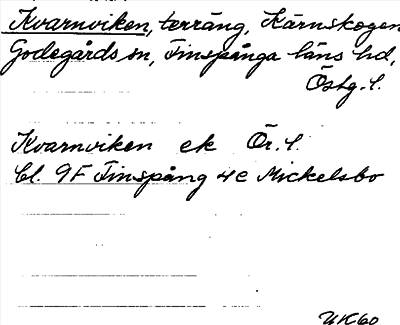 Kvarnviken, terräng, Kärnskogen
Godegårds sn, Finspånga läns hd,
Östg. l.
Kvarnviken ek Ör. l.
bl. 9F Finspång 4e Mickelsbo
UK60